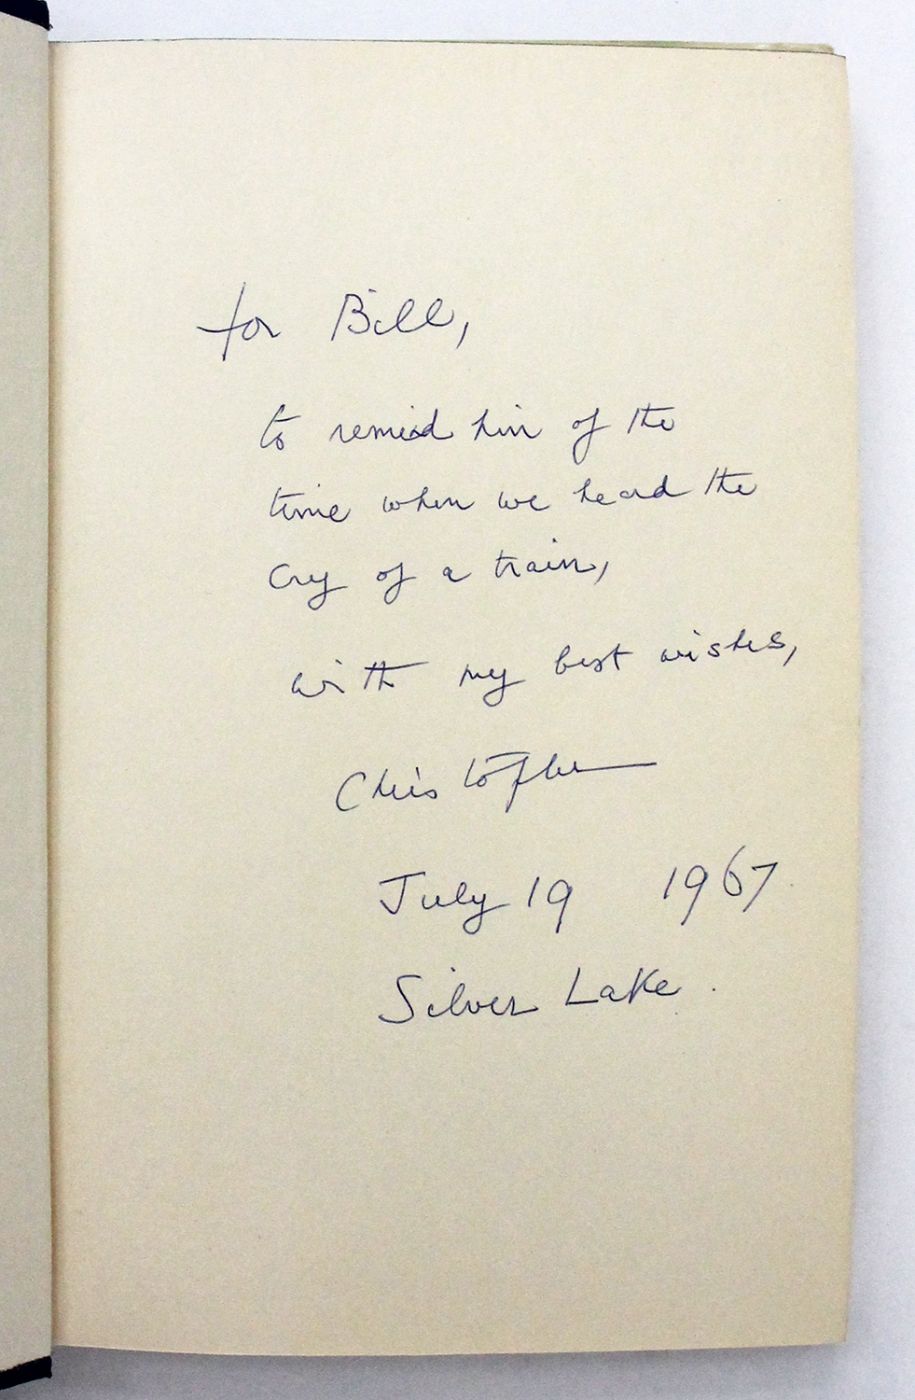 for Bill,
to remind him of the
time when we heard the
cry of a train,
with my best wishes,
Christopher
July 19 1967
Silver Lake.